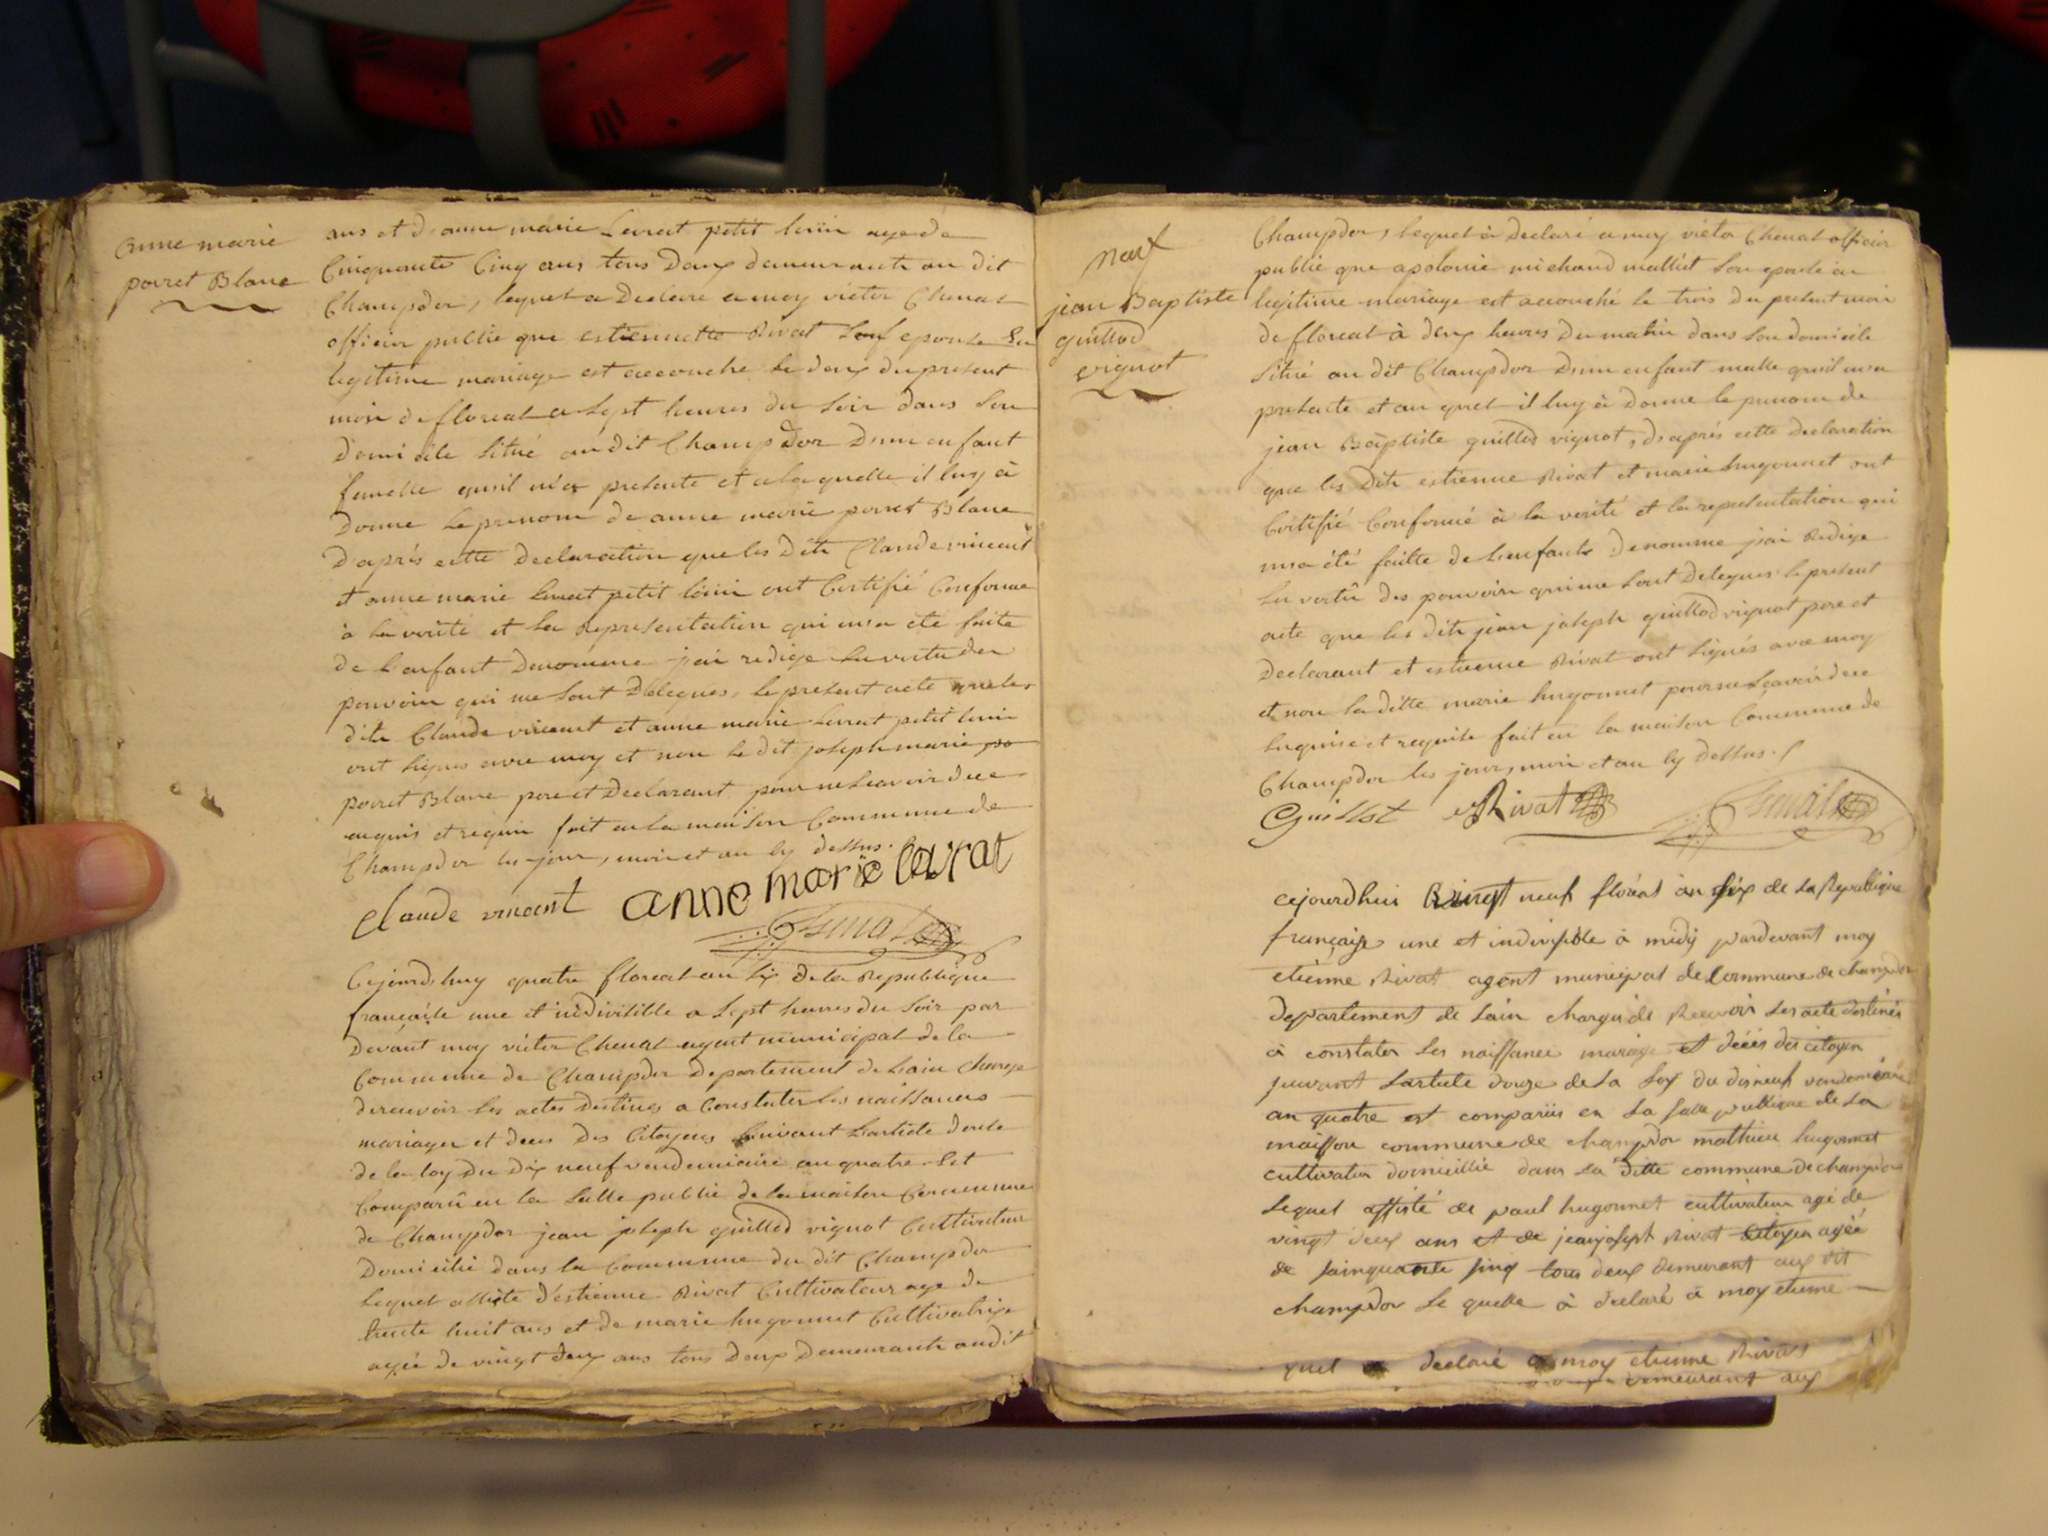 anne marie
poiret Blanc
ans et d'anne marie Levrat petit loüin agé de
Cinquante Cinq ans tous Deux demeurants au dit
Champdor, lequel a Declaré a moy victor Chenat
officier public que estiennette Rivat sont epouse En
legitime mariage est accouché le deux du present
mois de floreal a sept heures du soir dans son
domicile situé audit Champdor D'un enfant
femelle qu'il m'a presenté et a laquelle il luy à
Donné le prenom de anne marie poiret Blanc
D'aprés cette declaration que les Dits Claude vincent
et anne marie Levrat petit loüin ont Certifié Conforme
à la verité et la Representation qui m'a été faite
de L'enfant Denommé j'ai redigé En vertu des
pouvoirs qui me sont Delegués, le present acte que les
dits Claude vincent et anne marie Levrat petit louin
ont signés avec moy et non le dit joseph marie po
poiret Blanc pere et Declarant pour ne scavoir de ce
enquis et requis fait en la maison Commune de
Champdor les jour, mois et an cy dessus.
Claude vincent anne marie levrat
Cejourd'huy quatre floreal an six de la Republique
française une et indivisible a sept heures du soir par
devant moy victor Chenat agent municipal de la
Commune de Champdor departement de Lain chargé
de recevoir les actes destinés a Constater les naissances
mariages et deces des Citoyens suivant L'article douze
de la loy du dix neuf vendemiaire an quatre Est
Comparû en la salle public de la maison Commune
de Champdor jean joseph guillod vignot Cultivateur
Domicilié dans la Commune du dit Champdor
Lequel assisté d'estienne Rivat Cultivateur age de
trente huit ans et de marie hugonnet Cultivatrice
agée de vingt deux ans tous deux Demeurants audit
neuf
jean Baptiste
guillod
vignot
Champdor, lequel à Declaré a moy victor Chenat officier
public que apolonie michaud mallet son epouse en
legitime mariage est accouché le trois du present mois
de floreal à deux heures du matin dans son domicile
situé au dit Champdor D'un enfant malle qu'il m'a
presenté et au quel il luy à Donné le prenom de
jean Baptiste guillod vignot, d'aprés cette declaration
que les Dits estienne Rivat et marie hugonnet ont
Certifié Conforme à la verité et la representation qui
m'a été faitte de L'enfant denommé j'ai Redigé
En vertû des pouvoirs qui me sont Delegués le present
acte que les dits jean joseph guillod vignot pere et
Declarant et estienne Rivat ont signés avec moy
et non la ditte marie hugonnet pour ne scavoir de ce
Enquise et requise fait en la maison Commune de
Champdor les jour, mois et an cy dessus.
Guillot Rivat
cejourdhui vingt neuf floréal an six de la Republique
française une et indivisible à midy pardevant moy
etienne Rivat agent municipal de Commune de champdor
departement de Lain chargé de Recevoir les acte destinés
à constater les naissance mariage et décés des citoyen
suivant Larticle douze de la Loy du dixneuf vendemiaire
an quatre est comparüs en la salle publique de la
maisson commune de champdor mathieu hugonnet
cultivateur domicillié dans la ditte commune de champdor
Lequel assisté de paul hugonnet cultivateur agé de
vingt deux ans et de jean joseph Rivat Citoyen agéé
de sainquante sinq tous deux demurant aux dit
champdor Le quelle à declaré à moy etienne
quel a declaré a moy etienne Rivat
demeurant aux